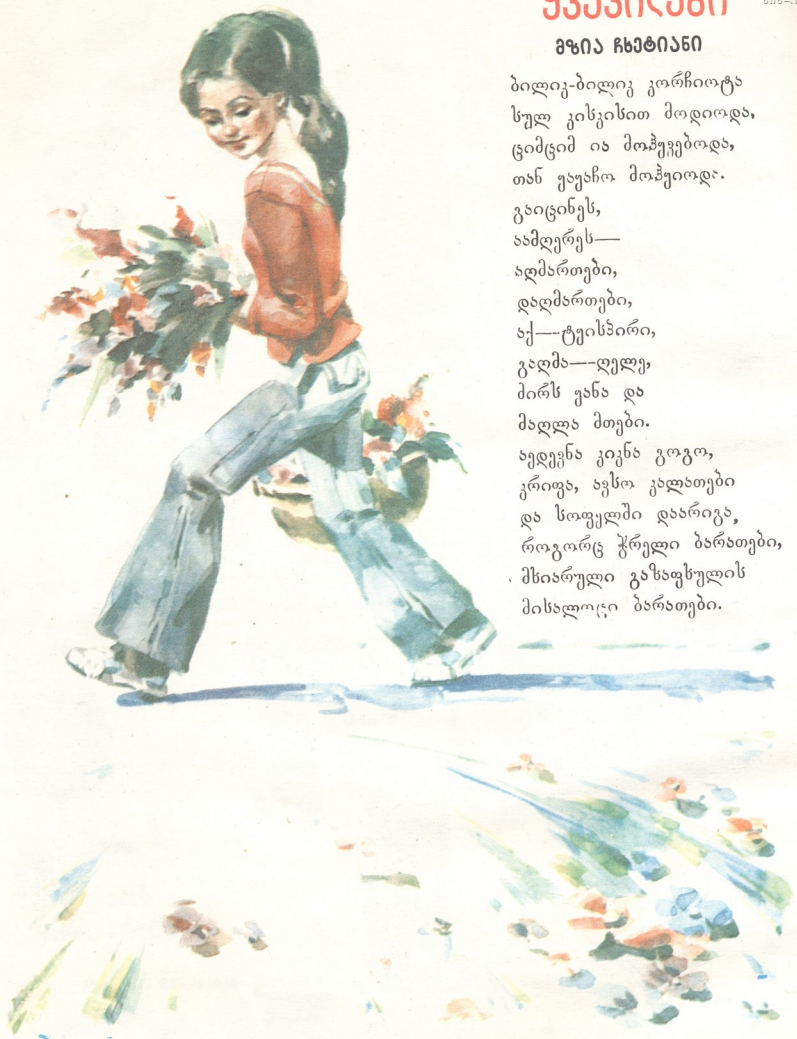 ყვავილები
მზია ჩხეტიანი
ბილიკ-ბილიკ კორჩიოტა
სულ კისკისით მოდიოდა,
ციმციმ ია მოჰყვებოდა,
თან ყაყაჩო მოჰყიოდა.
გაიცინეს,
აამღერეს—
აღმართები,
დაღმართები,
აქ—ტყისპირი,
გაღმა—ღელე,
მირს ყანა და
მაღლა მთები.
აედევნა კიკნა გოგო,
კრიფა, ავსო კალათები
და სოფელში დაარიგა,
როგორც ჭრელი ბარათები,
მხიარული გაზაფხულის
მისალოცი ბარათები.